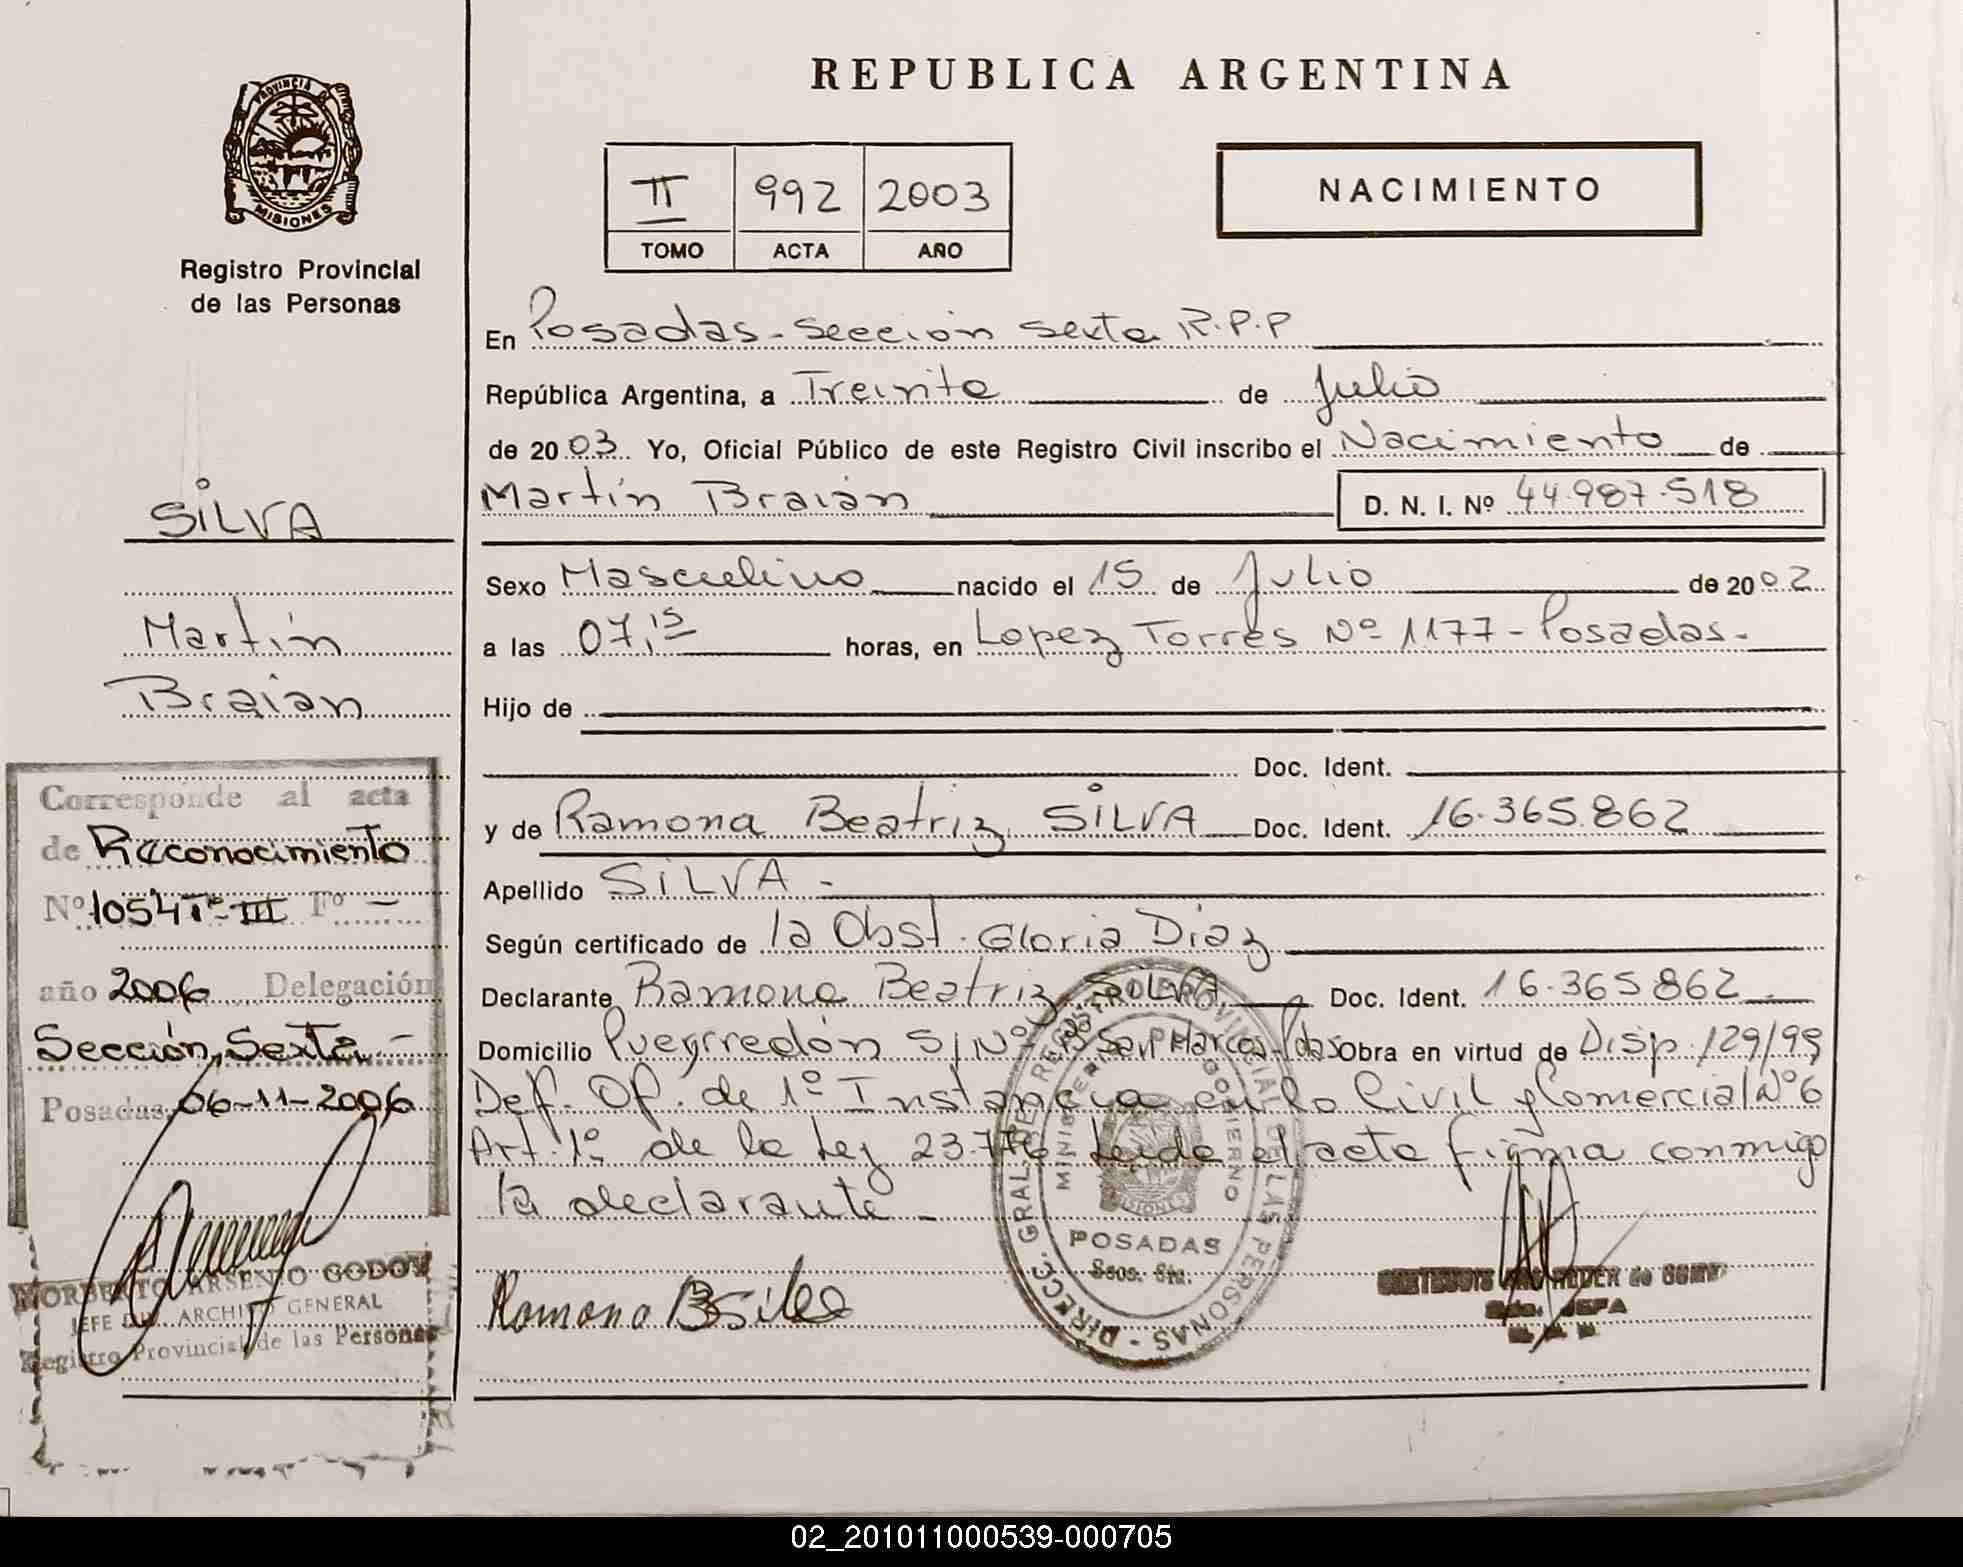 REPUBLICA ARGENTINA
PROVINCIA DE
MISIONES
Registro Provincial
de las Personas
II 992 2003
TOMO ACTA AÑO
NACIMIENTO
En Posadas - Sección Sexta R.P.P
República Argentina, a Treinta de Julio
de 2003 Yo, Oficial Público de este Registro Civil inscribo el Nacimiento de
Martín Braian D. N. I. Nº 44.987.518
Sexo Masculino nacido el 15 de Julio de 2002
a las 07,15 horas, en Lopez Torres Nº 1177 - Posadas -
Hijo de
Doc. Ident.
y de Ramona Beatriz SILVA Doc. Ident. 16.365.862
Apellido SILVA -
Según certificado de la Obst. Gloria Diaz
Declarante Ramona Beatriz SILVA Doc. Ident. 16.365.862
Domicilio Pueyrredón S/Nº Bº San Marcos - Pdas Obra en virtud de Disp. 129/99
Def. Of. de 1º Instancia en lo Civil y Comercial Nº 6
Art. 1º de la Ley 23.776 Leida el acta firma conmigo
la declarante -
Ramona B Silva
DIRECC. GRAL. DE REGISTRO PROVINCIAL DE LAS PERSONAS -
MINISTERIO DE GOBIERNO
POSADAS
Secc. 6ta.
JEFA
SILVA
Martín
Braian
Corresponde al acta
de Reconocimiento
Nº 1054 Tº III Fº -
año 2006 Delegación
Sección Sexta -
Posadas, 06-11-2006
NORBERTO ARSENIO GODOY
JEFE DIV. ARCHIVO GENERAL
Registro Provincial de las Personas
02_201011000539-000705